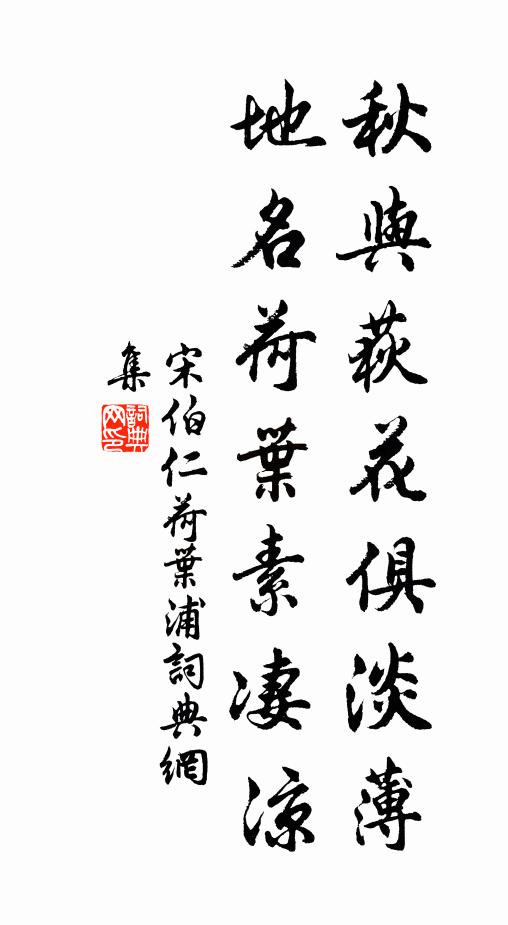 秋與荻花俱淡薄
地名荷葉素凄涼
宋伯仁荷葉浦詞典網
集
詞典網印